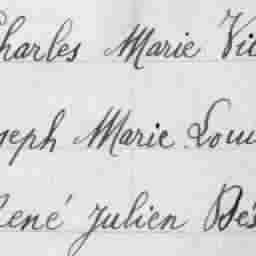 Charles Marie Vic
Joseph Marie Loui
René Julien Dés